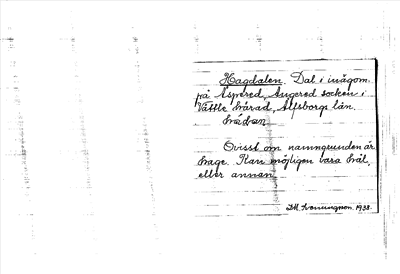 Hagdalen. Dal i inägom.
på Aspered, Angered socken i
Vättle härad, Älfsborgs län.
Ovisst om namngrunden är
hage. Kan möjligen vara häl,
eller annan.
1938.